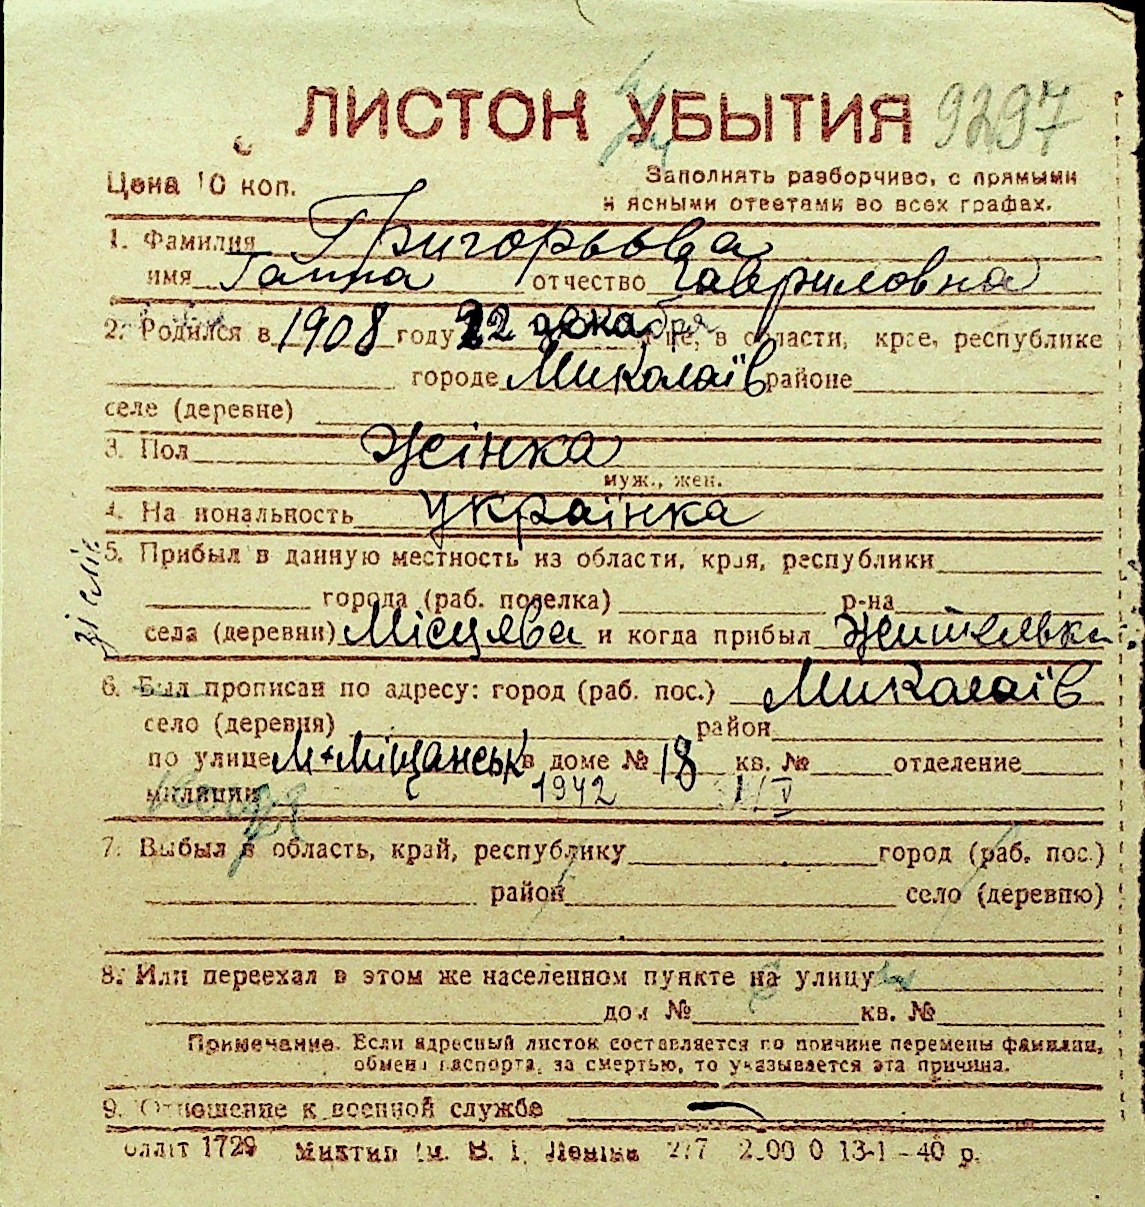 ЛИСТОК УБЫТИЯ 9297
Цена 10 коп.
Заполнять разборчиво, с прямыми
и ясными ответами во всех графах.
1. Фамилия Григорьєва
имя Ганна отчество Гавриловна
2. Родился в 1908 году 22 декабря це, в области, крае, республике
городе Миколаїв районе
селе (деревне)
3. Пол Жінка
муж., жен.
4. На иональность Українка
5. Прибыл в данную местность из области, края, республики
города (раб. поселка) р-на
села (деревни) Місцева и когда прибыл жителька
6. Был прописан по адресу: город (раб. пос.) Миколаїв
село (деревня) район
по улице М-Міщанськ в доме № 18 кв. № отделение
милиции 1942
7. Выбыл в область, край, республику город (раб. пос.)
район село (деревню)
8. Или переехал в этом же населенном пункте на улицу
дом № кв. №
Примечание. Если адресный листок составляется по причине перемены фамилии,
обмена паспорта, за смертью, то указывается эта причина.
9. Отношение к военной службе
облліт 1729 Миктип ім. В. І. Леніна 13-1-40 р.